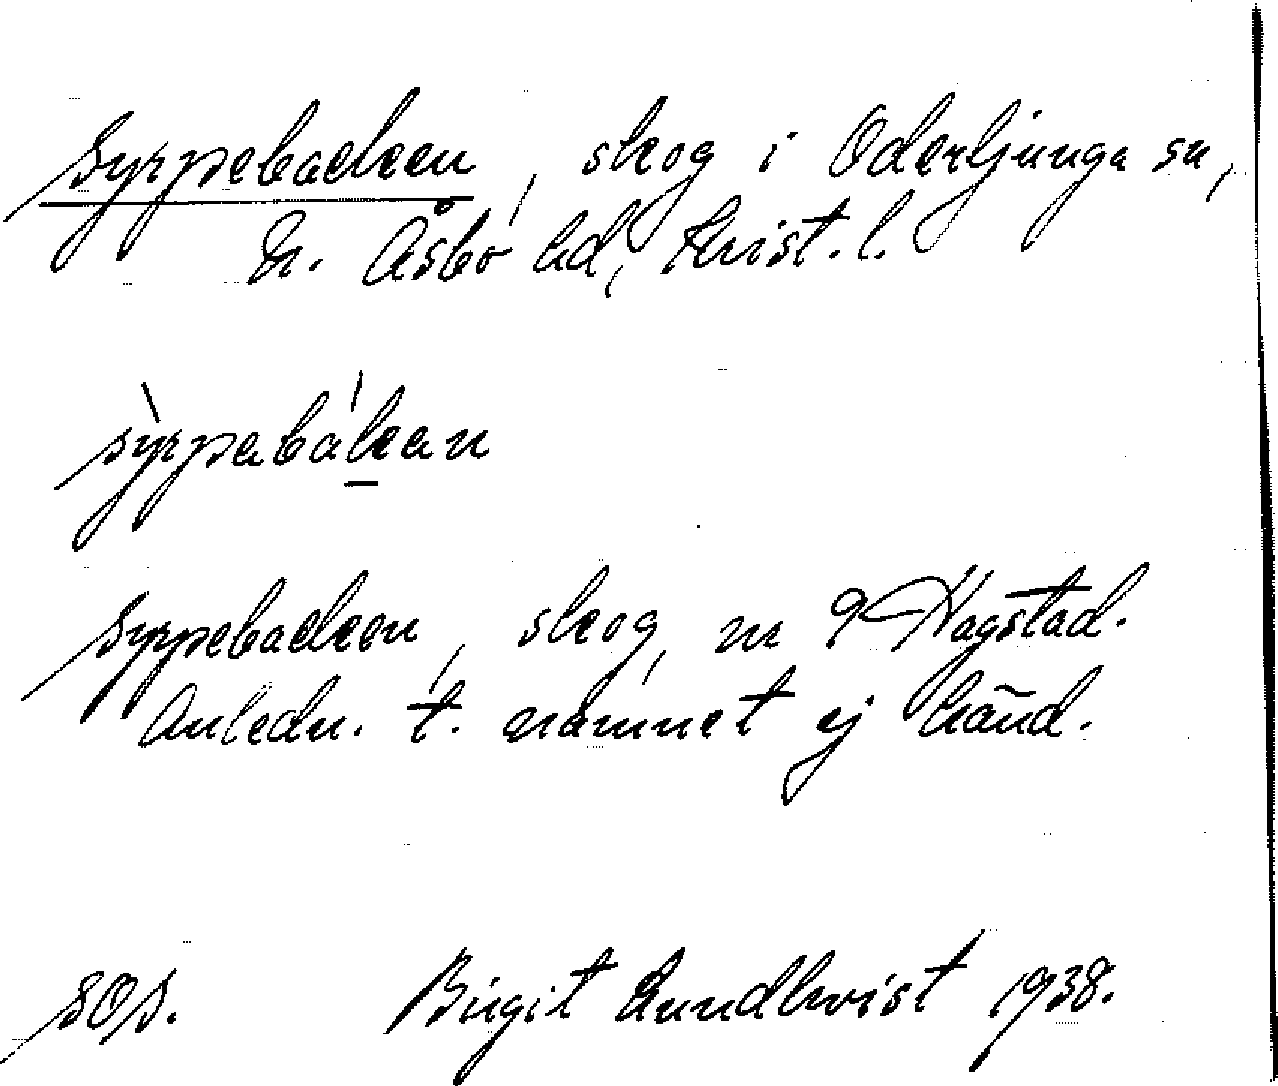 Syrpebacken, skog i Oderljunga sn,
N. Åsbo hd, Krist. l.
sỳrpabákan
Syrpebacken, skog, nr 9 Hagstad.
Anledn. t. namnet ej känd.
SOS. Birgit Lundkvist 1938.